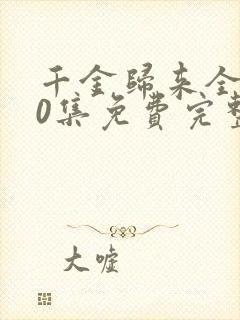 千金歸来全
0集免費完整
大嘘